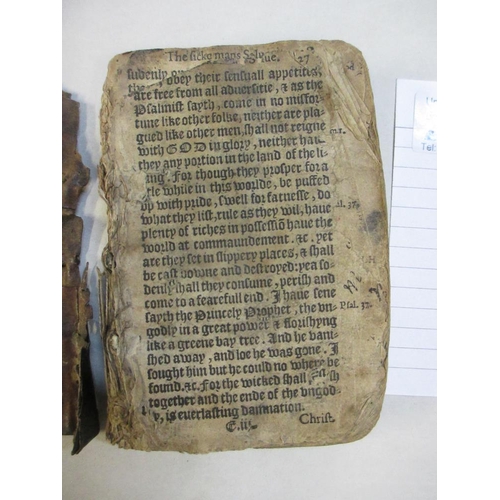 The sicke mans Salvue. 27
sudenly obey their sensuall appetites,
are free from all aduersitie, & as the
Psalmist sayth, come in no misfor-
tune like other folke, neither are pla-
gued like other men, shall not reigne
with GOD in glory, neither haue
they any portion in the land of the li-
ing. For though they prosper for a
tle while in this worlde, be puffed
vp with pride, swell for fatnesse, do
what they list, rule as they wil, haue
plenty of riches in possessiō haue the
world at commaundement. &c. yet
are they set in slippery places, & shall
be cast downe and destroyed: yea so-
denly shall they consume, perish and
come to a fearefull end. I haue sene
sayth the Princely Prophet, the vn-
godly in a great power & florishyng
like a greene bay tree. And he vani-
shed away, and loe he was gone. I
sought him but he could no where be
found. &c. For the wicked shall
together and the ende of the vngod-
y, is euerlasting damnation.
E.iij. Christ.
al. 37.
Psal. 37.
Tel: